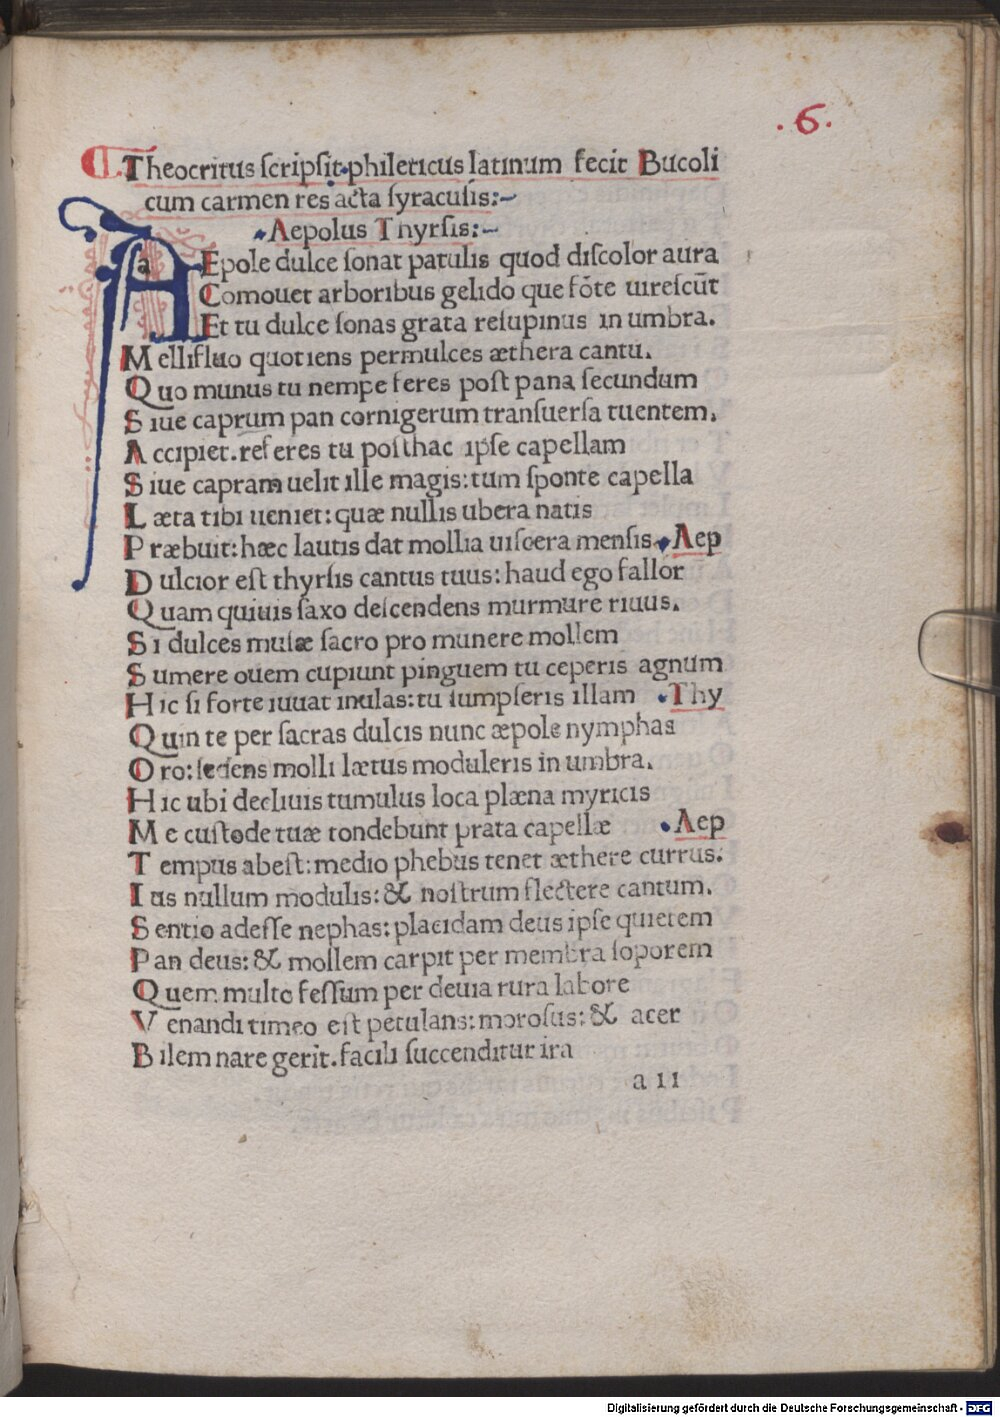 .6.
Theocritus scripsit·phileticus latinum fecit Bucoli
cum carmen res acta syracusis:~
Aepolus Thyrsis:~
AEpole dulce sonat patulis quod discolor aura
Comouet arboribus gelido que fōte uirescūt
Et tu dulce sonas grata resupinus in umbra.
Mellifluo quotiens permulces æthera cantu.
Quo munus tu nempe feres post pana secundum
Siue caprum pan cornigerum transuersa tuentem.
Accipiet.referes tu posthac ipse capellam
Siue capram uelit ille magis:tum sponte capella
Læta tibi ueniet:quæ nullis ubera natis
Præbuit:hæc lautis dat mollia uiscera mensis Aep
Dulcior est thyrsis cantus tuus:haud ego fallor
Quam quiuis saxo descendens murmure riuus.
Si dulces musæ sacro pro munere mollem
Sumere ouem cupiunt pinguem tu ceperis agnum
Hic si forte iuuat inulas:tu sumpseris illam Thy
Quin te per sacras dulcis nunc æpole nymphas
Oro:sedens molli lætus moduleris in umbra.
Hic ubi decliuis tumulus loca plæna myricis
Me custode tuæ tondebunt prata capellæ Aep
Tempus abest:medio phebus tenet æthere currus.
Ius nullum modulis:& nostrum flectere cantum.
Sentio adesse nephas:placidam deus ipse quietem
Pan deus:& mollem carpit per membra soporem
Quem multo fessum per deuia rura labore
Venandi timeo est petulans:morosus:& acer
Bilem nare gerit.facili succenditur ira
a ii
Digitalisierung gefördert durch die Deutsche Forschungsgemeinschaft - DFG